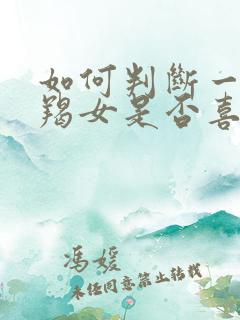 如何判斷一
羯女是否喜
馮媛
未经同意禁止转载